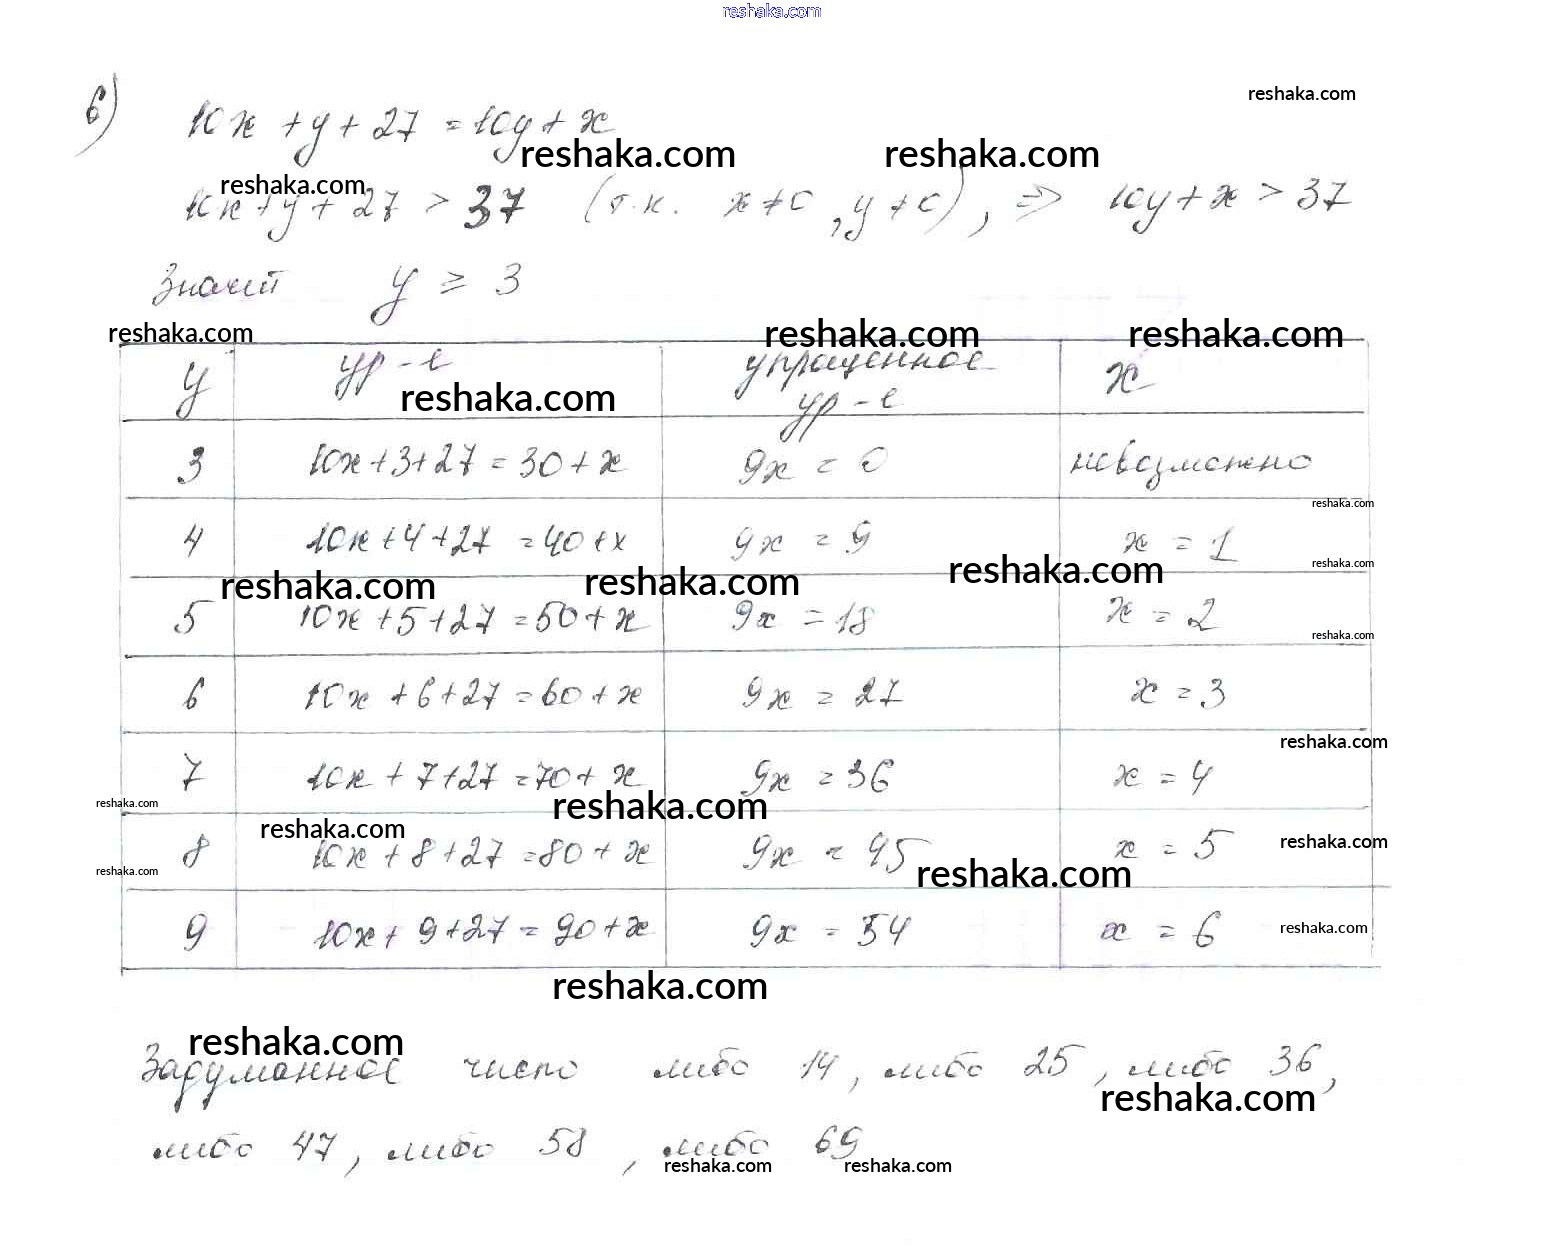 reshaka.com
reshaka.com
б) 10x + y + 27 = 10y + x
reshaka.com reshaka.com
reshaka.com
10x + y + 27 > 37 (т.к. x ≠ 0, y ≠ 0), ⇒ 10y + x > 37
Значит y ≥ 3
reshaka.com reshaka.com reshaka.com
y ур-е упрощенное ур-е x
reshaka.com
3 10x + 3 + 27 = 30 + x 9x = 0 невозможно
reshaka.com
4 10x + 4 + 27 = 40 + x 9x = 9 x = 1
reshaka.com reshaka.com reshaka.com reshaka.com
5 10x + 5 + 27 = 50 + x 9x = 18 x = 2
reshaka.com
6 10x + 6 + 27 = 60 + x 9x = 27 x = 3
reshaka.com
7 10x + 7 + 27 = 70 + x 9x = 36 x = 4
reshaka.com reshaka.com
reshaka.com reshaka.com
8 10x + 8 + 27 = 80 + x 9x = 45 x = 5
reshaka.com reshaka.com
9 10x + 9 + 27 = 90 + x 9x = 54 x = 6
reshaka.com
reshaka.com
reshaka.com
Задуманное число либо 14, либо 25, либо 36,
reshaka.com
либо 47, либо 58, либо 69
reshaka.com reshaka.com